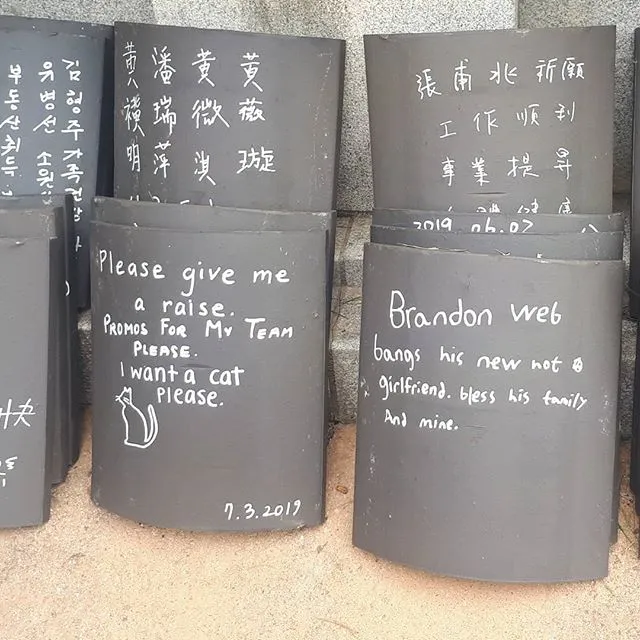 김형주 가족건
유병선 소원
부동산취득
黃薇璇
黃微淇
潘瑞萍
張甫兆祈願
工作順利
事業提昇
2019.06.02
快
Please give me
a raise.
PROMOS FOR MY TEAM
PLEASE.
I want a cat
please.
7.3.2019
Brandon Web
bangs his new hot
girlfriend. bless his family
And mine.